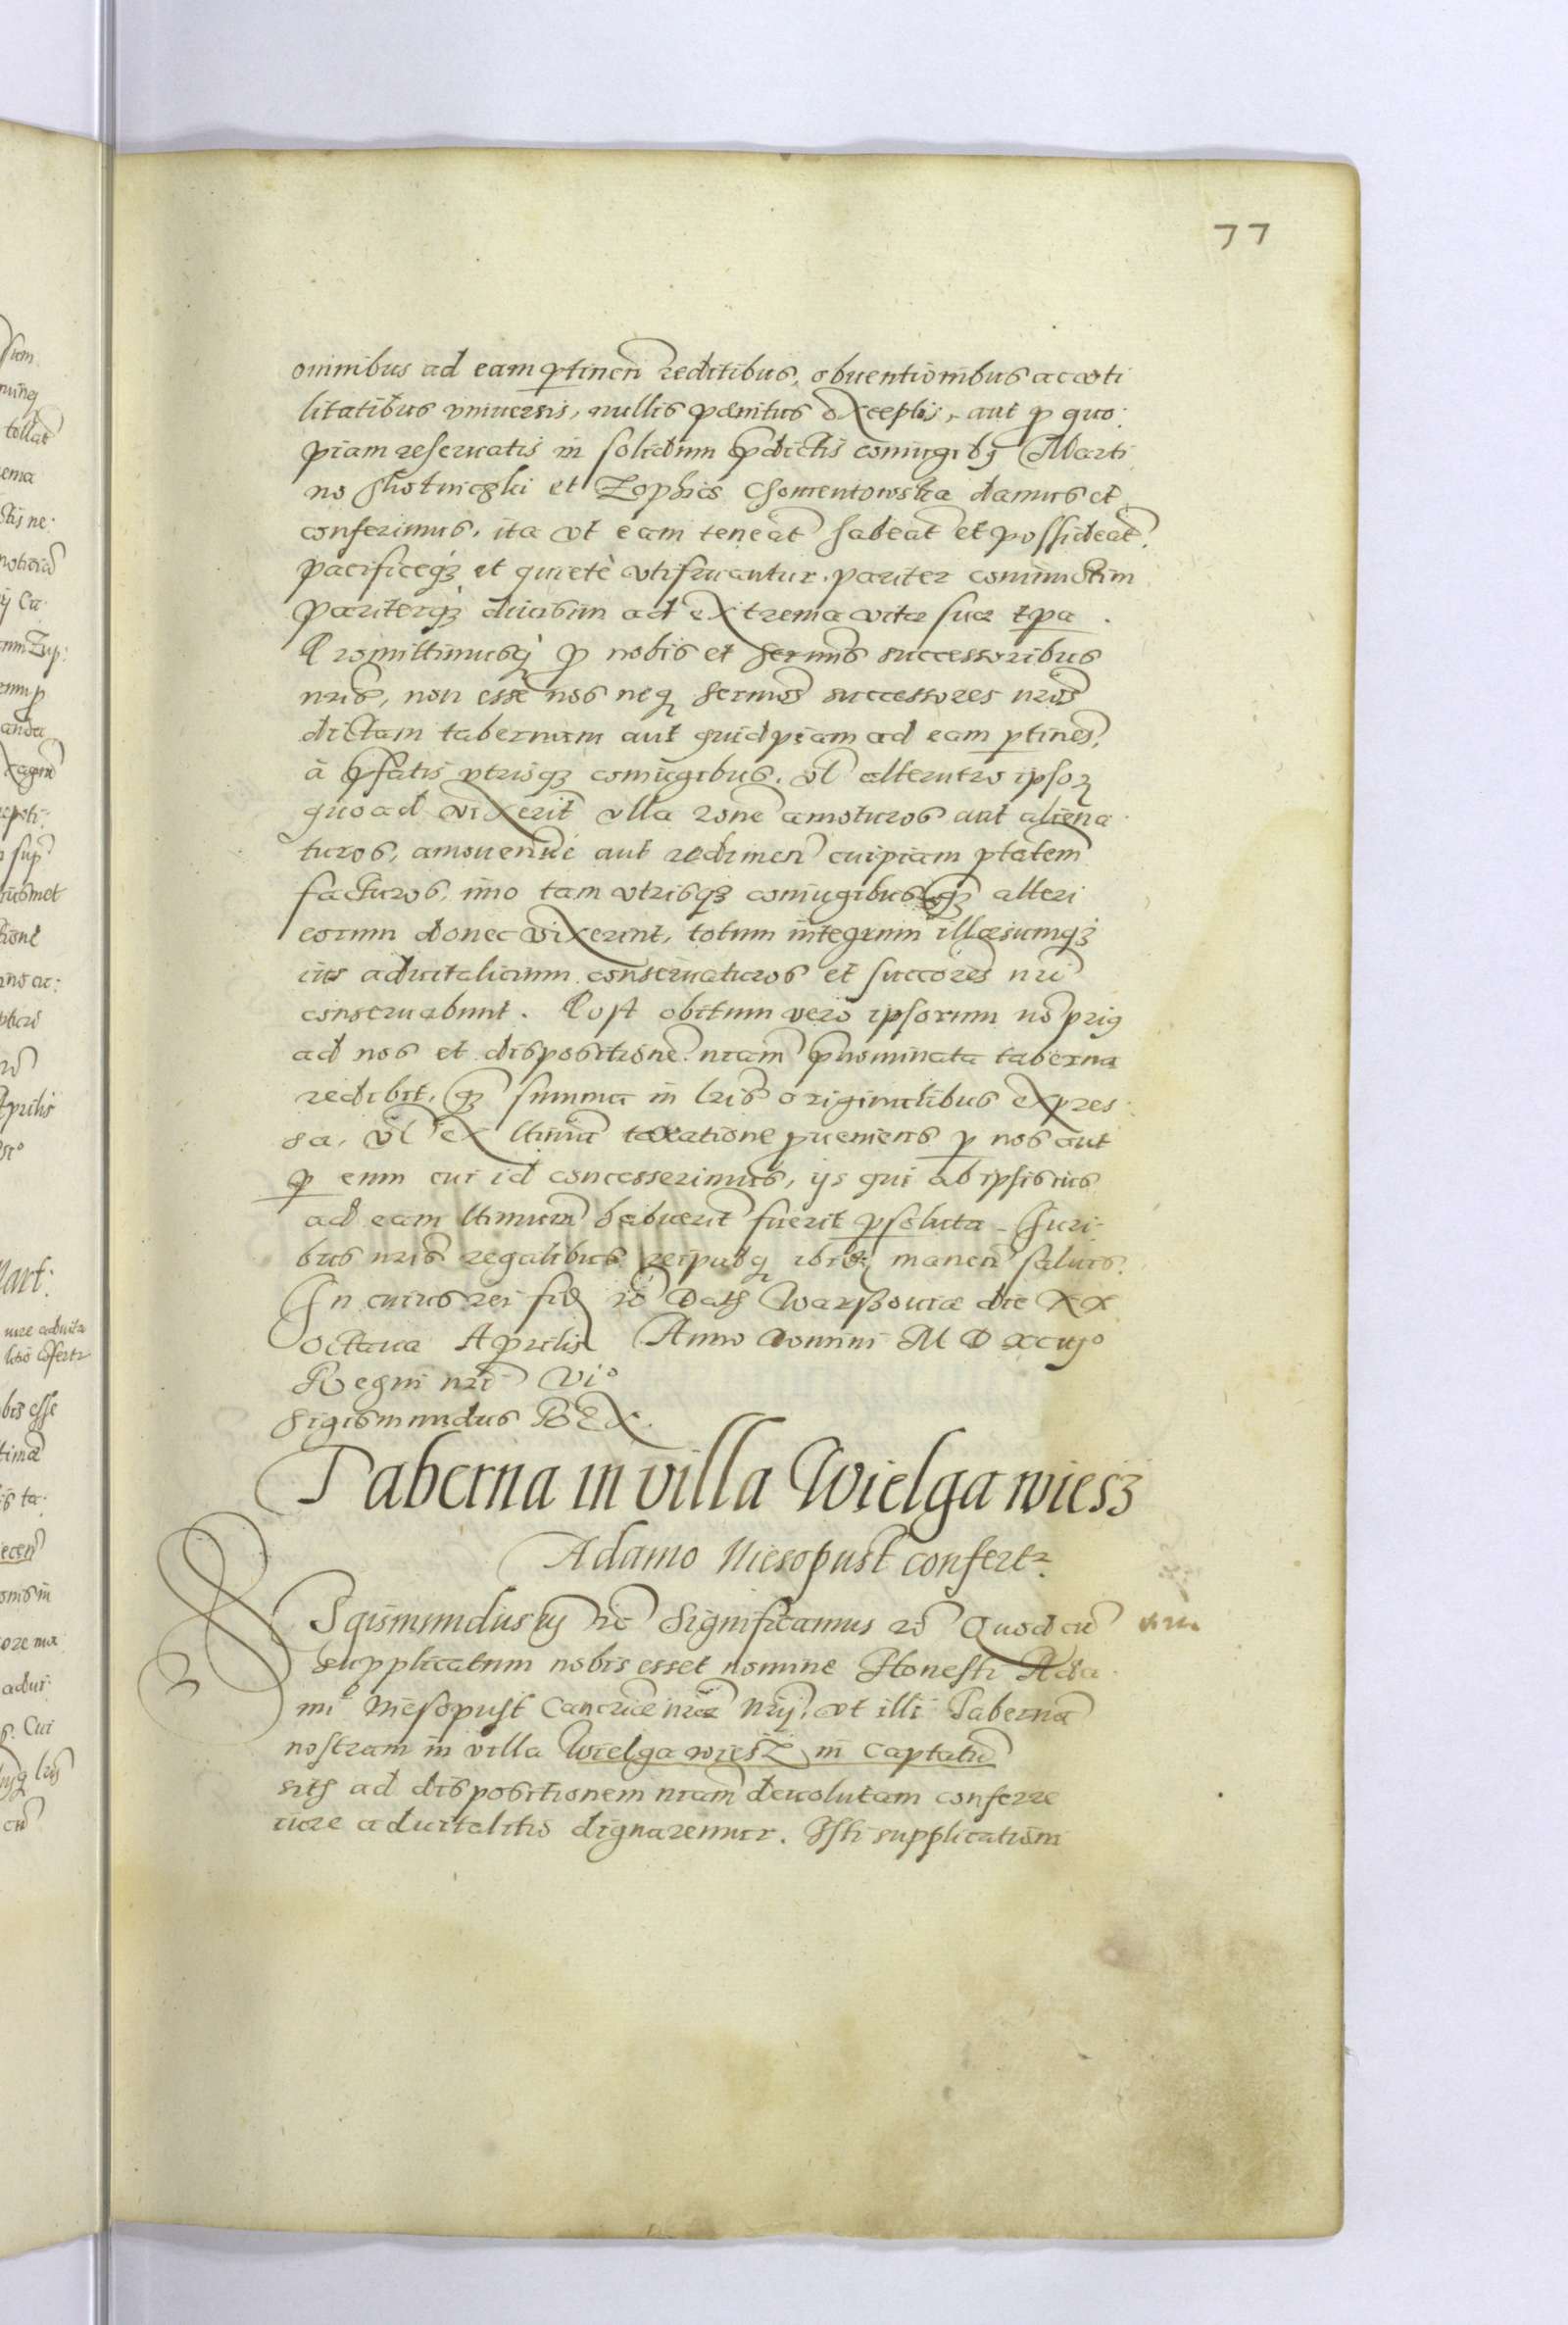 77
omnibus ad eam ptinen reditibus, obuentionibus ac vti
litatibus vniuersis, nullis pœnitus exceptis, aut p quo:
piam reseruatis in solidum pdictis coniugibȝ Marti
no et Zophiæ Chomentowska damus et
conferimus, ita vt eam teneat habeat et possideat,
pacificeqȝ et quietè vtifruantur, pariter coniunctim
pariterqȝ diuisim ad extrema vitæ suæ tpa.
Promittimusqȝ p nobis et sermis successoribus
nris, non esse nos neqȝ sermos successores nros
dictam tabernam aut quidpiam ad eam ptines,
à pfatis vtrisqȝ coniugibus, vl alterutro ipsoꝝ
quoad vixerit vlla rone amoturos aut aliena
turos, amouendi aut redimen cuipiam ptatem
facturos, imo tam vtrisqȝ coniugibus qȝ alteri
eorum donec vixerint, totum integrum illæsumqȝ
ius aduitalicium conseruaturos et succores nri
conseruabunt. Post obitum vero ipsorum nō prius
ad nos et dispositione nram pnominata taberna
redibit, qȝ summa in lris originalibus expres
sa, vl ex ltima taxatione pueniens p nos aut
p eum cui id concesserimus, ijs qui ab ipsis ius
ad eam ltimum habuerit fuerit psoluta. Juri-
bus nris regalibus reipubqȝ ibidȝ manen saluis.
In cuius rei fidȝ rc Datȝ Warßouiæ die XX
octaua Aprilis Anno Domini M D xciijo
Regni nri Vio
Sigismundus REX.
Taberna in villa Wielga wiesz
Adamo Miesopust confertr.
Sgismundus iij rc Significamus rc Quod cū
supplicatum nobis esset nomine Honesti Ada
mi Mięsopust Cancriæ nræ Mrij, vt illi Tabernā
nostram in villa Wielga wiesz in Captatu
sitȝ ad dispositionem nram deuolutam conferre
iure aduitalitio dignaremur. Isti supplicationi